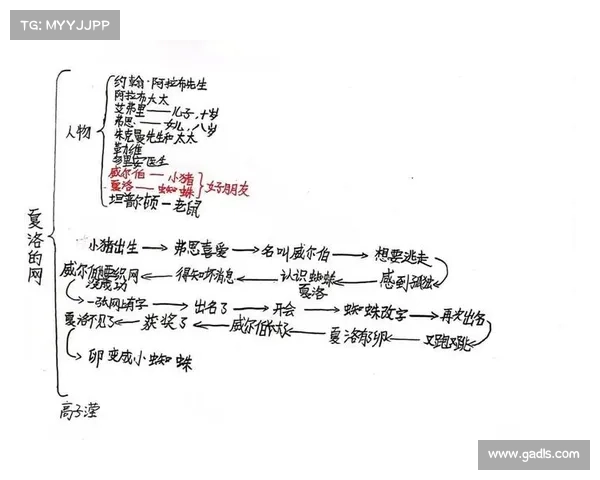 TG: MYYJJPP
夏洛的网
人物
约翰·阿拉布先生
阿拉布太太
艾弗里——儿子,十岁
弗恩——女儿,八岁
朱克曼先生和太太
勒维
多里安医生
威尔伯——小猪
夏洛——蜘蛛
好朋友
坦普尔顿—老鼠
小猪出生→弗恩喜爱→名叫威尔伯→想要逃走
威尔伯要织网←得知坏消息←认识蜘蛛夏洛←感到孤独
没成功
→一张网上有字→出名了→开会→蜘蛛改字→再次出名
夏洛不见了←获奖了←威尔伯←夏洛有卵←又跑又跳
→卵变成小蜘蛛
高子滢
www.gadls.com